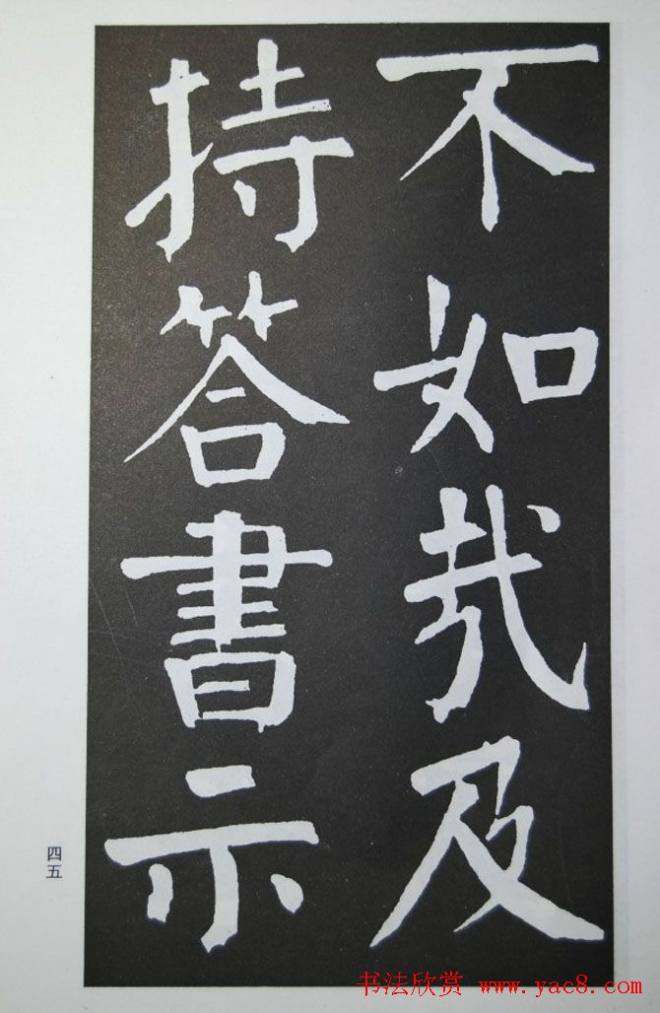 不如哉及
持答書示
四五
书法欣赏 www.yac8.com